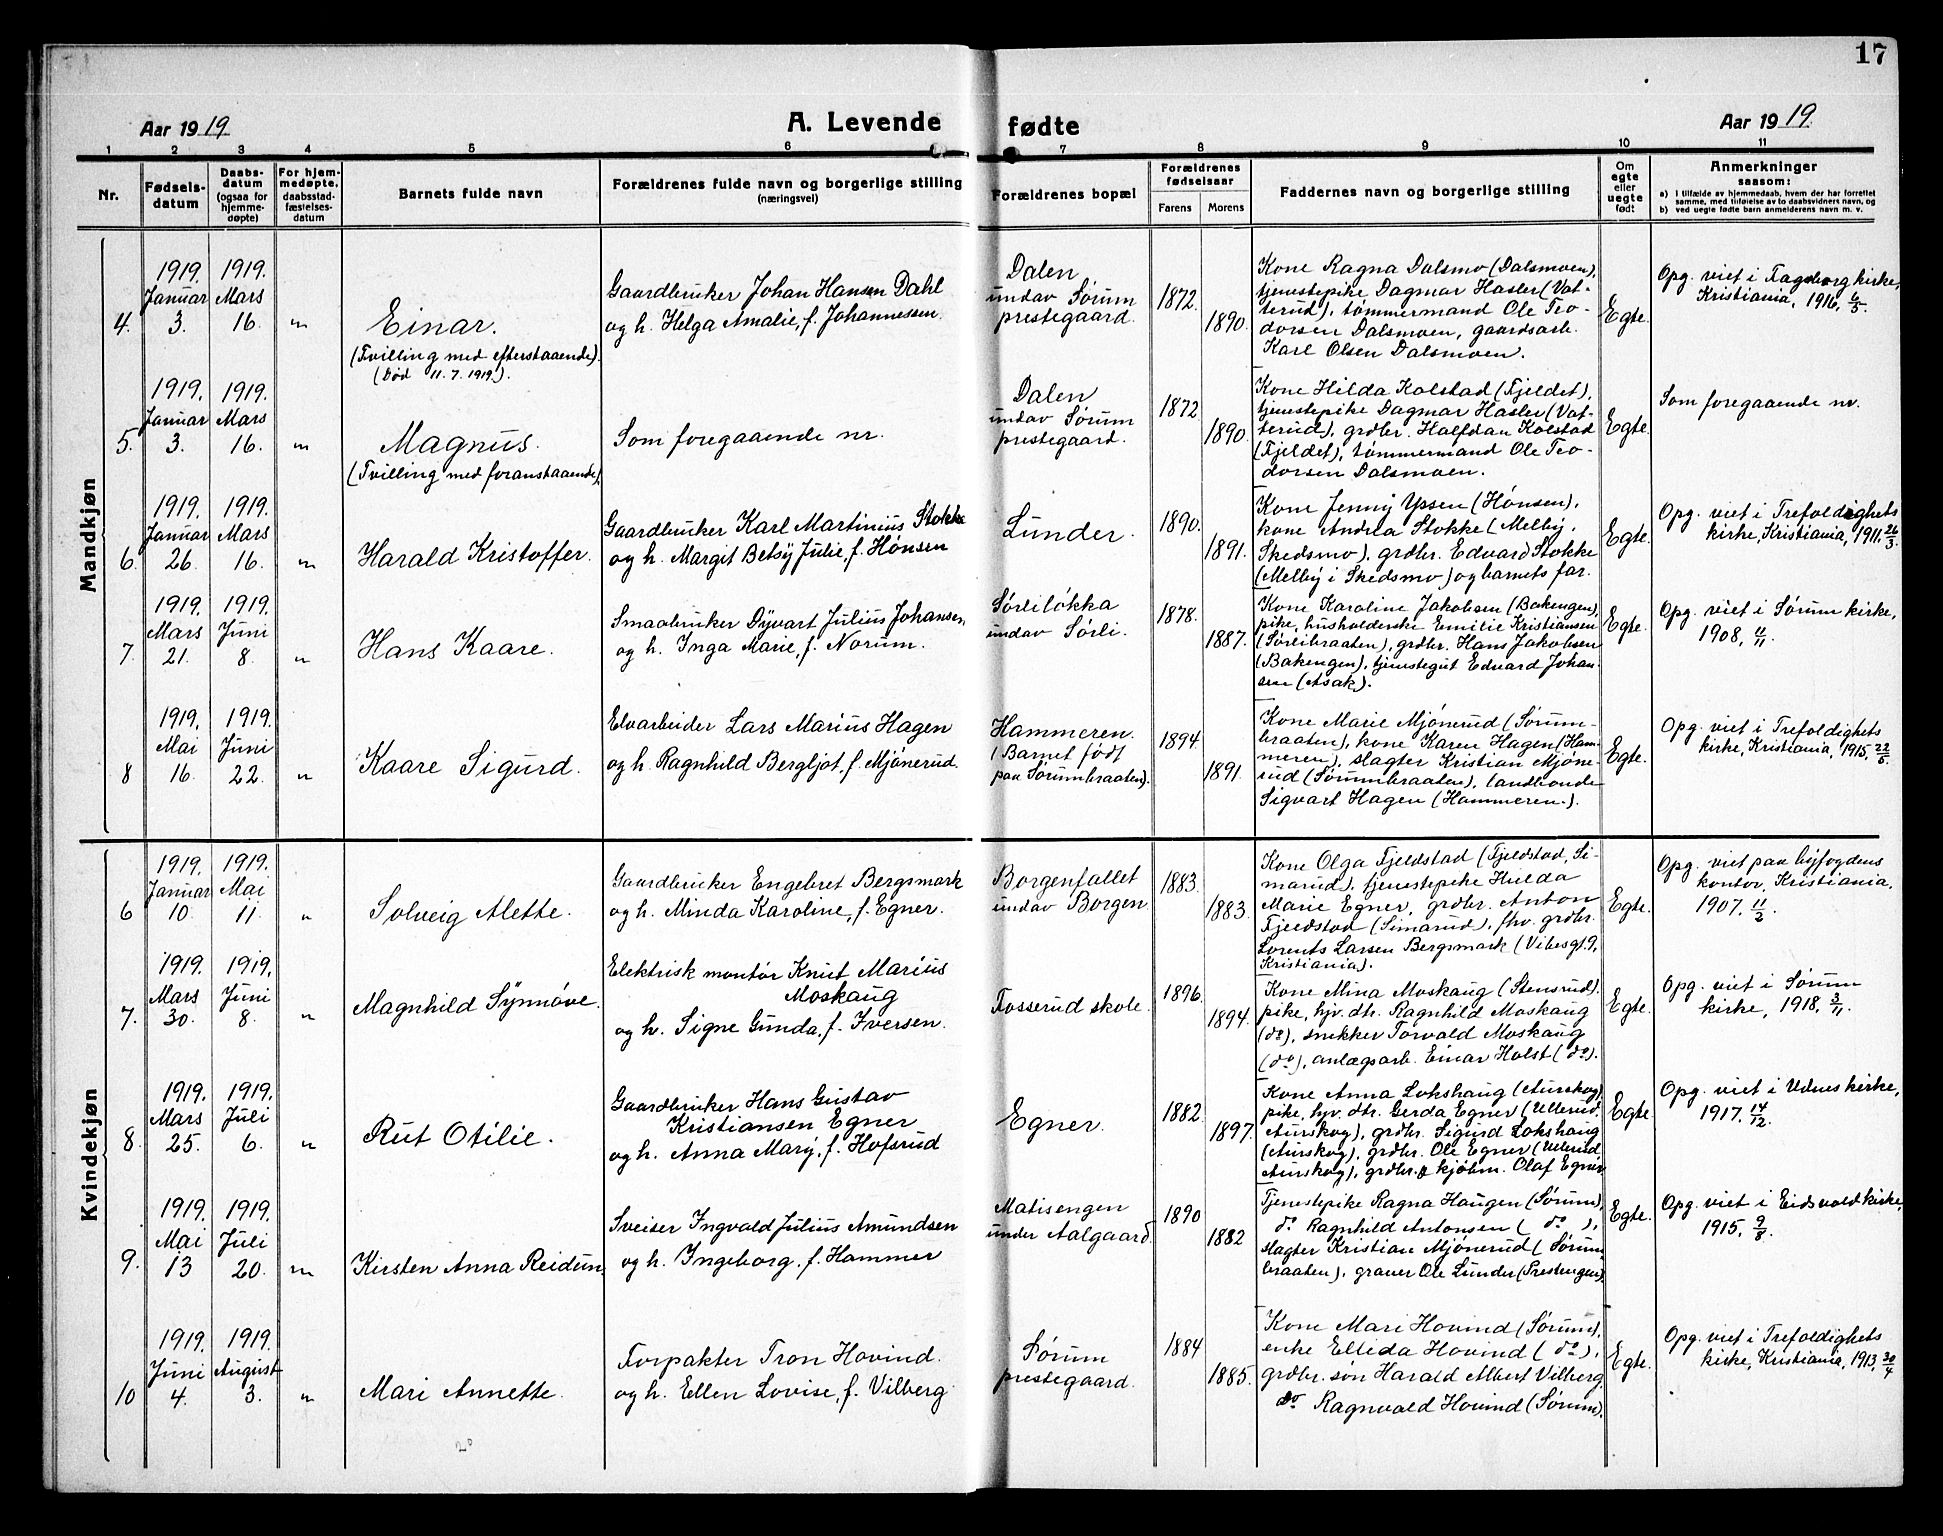 17
Aar 1919
A. Levende fødte
Aar 1919.
1 2 3 4 5 6 7 8 9 10 11
Nr.
Fødsels-
datum
Daabs-
datum
(ogsaa for
hjemme-
døpte)
For hjem-
medøpte,
daabsstad-
fæstelses-
datum
Barnets fulde navn
Forældrenes fulde navn og borgerlige stilling
(næringsvei)
Forældrenes bopæl
Forældrenes
fødselsaar
Farens Morens
Faddernes navn og borgerlige stilling
Om
egte
eller
uegte
født
Anmerkninger
saasom:
a) i tilfælde av hjemmedaab, hvem der har forrettet
samme, med tilføielse av to daabsvidners navn, og
b) ved uegte fødte barn anmelderens navn m. v.
Mandkjøn
4
1919.
Januar
3.
1919.
Mars
16.
"
Einar.
(Tvilling med efterstaaende).
(Død 11.7.1919.).
Gaardbruker Johan Hansen Dahl
og h. Helga Amalie, f. Johannessen.
Dalen
undav Sørum
prestegaard.
1872.
1890.
Kone Ragna Dalsmo (Dalsmoen),
tjenestepike Dagmar Hasler (Vat-
terud), tømmermand Ole Teo-
dorsen Dalsmoen, gaardsarb.
Karl Olsen Dalsmoen.
Egte.
Opg. viet i Fagerborg kirke,
Kristiania, 1916, 6/5.
5.
1919.
Januar
3.
1919.
Mars
16.
"
Magnus.
(Tvilling med foranstaaende).
Som foregaaende nr.
Dalen
undav Sørum
prestegaard.
1872
1890.
Kone Hilda Kolstad (Fjeldet),
tjenestepike Dagmar Hasler (Vat-
terud), grdbr. Halfdan Kolstad
(Fjeldet), tømmermand Ole Teo-
dorsen Dalsmoen.
Egte.
Som foregaaende nr.
6.
1919.
Januar
26.
1919.
Mars
16.
"
Harald Kristoffer.
Gaardbruker Karl Martinius Stokke
og h. Margit Betsy Julie, f. Hønsen
Lunder.
1890.
1891.
Kone Jenny Ypsen (Hønsen),
kone Andrea Stokke (Melby,
Skedsmo), grdbr. Edvard Stokke
(Melby i Skedsmo) og barnets far.
Egte.
Opg. viet i Trefoldighets
kirke, Kristiania, 1911. 26/3.
7.
1919.
Mars
21.
1919.
Juni
8.
"
Hans Kaare.
Smaabruker Dyvart Julius Johansen
og h. Inga Marie, f. Norum.
Sørliløkka
undav Sørli.
1878.
1887.
Kone Karoline Jakobsen (Bakengen),
pike, husholderske Emilie Kristiansen
(Sørlibraaten), grdbr. Hans Jakobsen
(Bakengen), tjenestegut Edvard Johan-
sen (Asak).
Egte.
Opg. viet i Sørum kirke,
1908,
8
1919.
Mai
16.
1919.
Juni
22.
"
Kaare Sigurd.
Elvarbeider Lars Marius Hagen
og h. Ragnhild Bergljot, f. Mjønerud.
Hammeren.
(Barnet født
paa Sørumbraaten).
1894.
1891.
Kone Marie Mjønerud (Sørum-
braaten), kone Karen Hagen (Ham-
meren), slagter Kristian Mjøne-
rud (Sørumbraaten), landhonde
Sigvart Hagen (Hammeren.).
Egte.
Opg. viet i Trefoldighets
kirke, Kristiania, 1915, 22/5.
Kvindekjøn
6
1919.
Januar
10.
1919.
Mai
11.
"
Solveig Alette.
Gaardbruker Engebret Bergsmark
og h. Minda Karoline, f. Egner.
Borgenfallet
undav Borgen
1883.
1883.
Kone Olga Fjeldstad (Fjeldstad, Si-
marud), tjenestepike Hulda
Marie Egner, grdbr. Anton
Fjeldstad (Simarud), fhv. grdbr.
Lorents Larsen Bergsmark (Vibesgt. 9,
Kristiania).
Egte.
Opg. viet paa byfogdens
kontor, Kristiania.
1907. 11/2.
7.
1919.
Mars
30.
1919.
Juni
8.
"
Magnhild Synnøve.
Elektrisk montør Knut Marius
Moskaug
og h. Signe Gunda, f. Iversen.
Fosserud skole.
1896.
1894.
Kone Mina Moskaug (Stensrud),
pike, hjv. dtr. Ragnhild Moskaug
(do), snekker Torvald Moskaug
(do), anlægsarb. Einar Holst (do).
Egte.
Opg. viet i Sørum
kirke, 1918, 3/11.
8.
1919.
Mars
25.
1919.
Juli
6.
"
Rut Otilie.
Gaardbruker Hans Gustav
Kristiansen Egner
og h. Anna Mary, f. Hofsrud
Egner.
1882.
1897.
Kone Anna Lokshaug (Aurskog),
pike, hjv. dtr. Gerda Egner (Ullerud,
Aurskog), grdbr. Sigurd Lokshaug
(Aurskog), grdbr. Ole Egner (Ullerud,
Aurskog), grdbr. & kjøbm. Olaf Egner.
Egte
Opg. viet i Udnes kirke,
1917. 14/12.
9.
1919.
Mai
13
1919.
Juli
20.
"
Kirsten Anna Reidun.
Sveiser Ingvald Julius Amundsen
og h. Ingeborg, f. Hammer
Matisengen
under Aalgaard.
1890
1882
Tjenestepike Ragna Haugen (Sørum),
do Ragnhild Antonsen ( do ),
slagter Kristian Mjønerud (Sørum-
braaten), graver Ole Lunder (Prestengen).
Egte.
Opg. viet i Eidsvold kirke,
1915, 9/8.
10
1919.
Juni
4.
1919.
August
3.
"
Mari Annette.
Forpakter Tron Hovind.
og h. Ellen Lovise, f. Vilberg.
Sørum
prestegaard.
1884
1885.
Kone Mari Hovind (Sørum),
enke Ellida Hovind ( do ),
grdbr. søn Harald Albert Vilberg,
do Ragnvald Hovind (Sørum).
Egte.
Opg. viet i Trefoldighets
kirke, Kristiania, 1913, 30/4